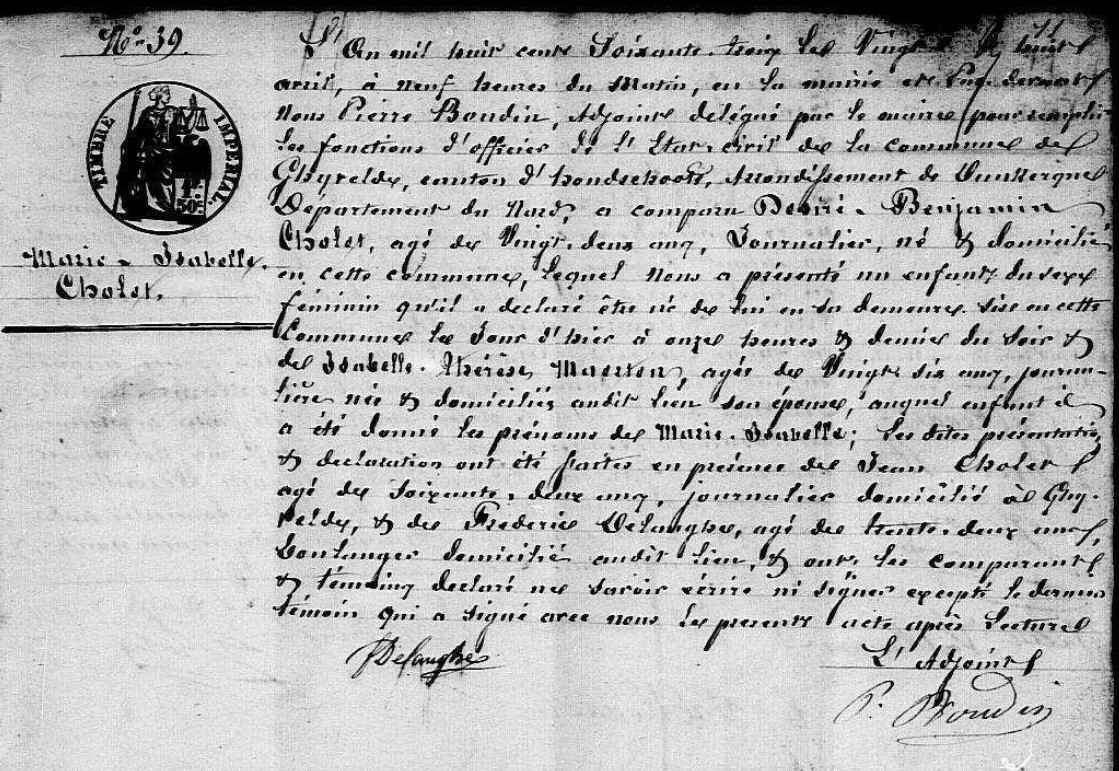 N° 39.
TIMBRE IMPÉRIAL
50c
Marie-Isabelle
Cholet.
L'An mil huit cent Soixante-trois le Vingt huit
avril, à neuf heures du Matin, en la mairie et Par devant
Nous Pierre Boudin, Adjoint délégué par le maire pour remplir
les fonctions d'officier de l'Etat-civil de la commune de
Ghyvelde, canton d'hondschoote, Arrondissement de Dunkerque
Département du Nord, a comparu Désiré-Benjamin
Cholet, agé de Vingt-deux ans, Journalier, né & domicilié
en cette commune, lequel Nous a présenté un enfant du sexe
féminin qu'il a declaré être né de lui en sa demeure sise en cette
Commune le Jour d'hier à onze heures & demie du Soir &
de Isabelle-Thérèse Maerten, agée de Vingt six ans, journa-
lière née & domiciliée audit lieu son épouse, auquel enfant il
a été donné les prénoms de Marie-Isabelle; les dites présentation
& declaration ont été faites en présence de Jean Cholet
agé de soixante-deux ans, journalier domicilié à Ghy-
velde, & de Frederic Delanghe, agé de trente-deux ans,
boulanger domicilié audit lieu, & ont les comparant
& témoins declaré ne savoir écrire ni signer excepté le dernier
témoin qui a signé avec nous le present acte après lecture
L'Adjoint
Delanghe
P. Boudin